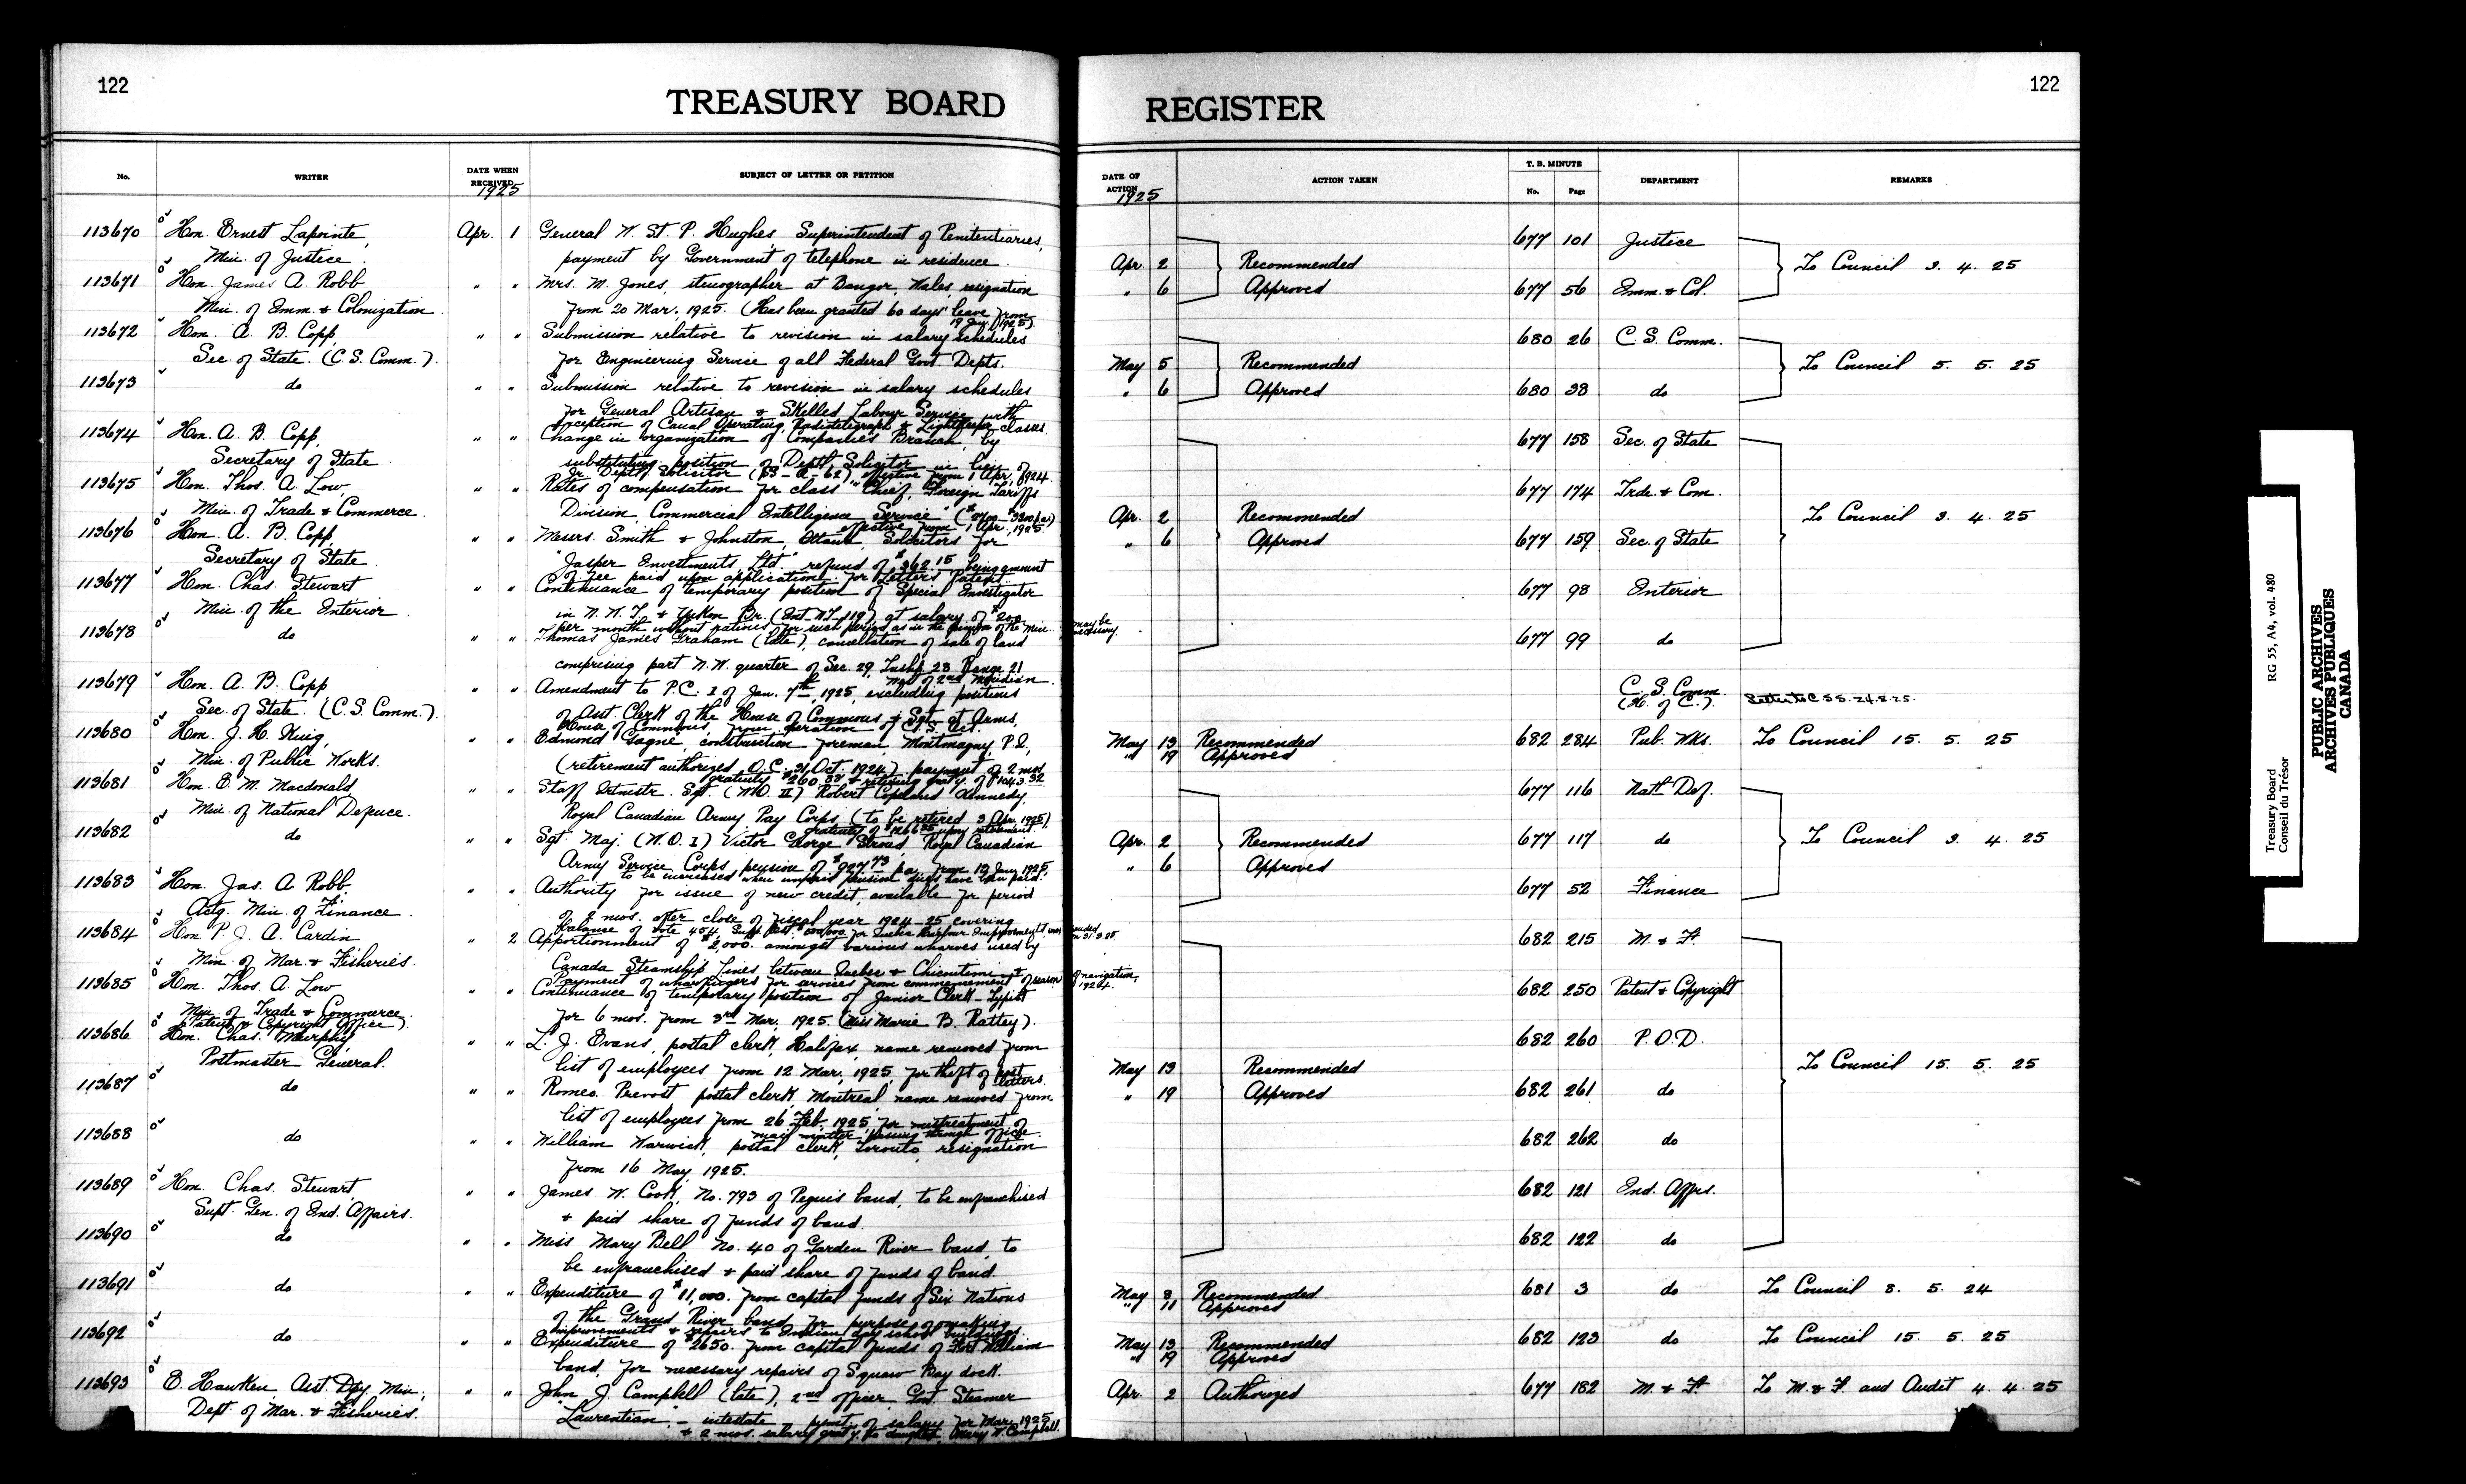 122
TREASURY BOARD
No.
WRITER
DATE WHEN RECEIVED
1925
SUBJECT OF LETTER OR PETITION
113670 Hon. Ernest Lapointe, Apr. 1 General W. St. P. Hughes, Superintendent of Penitentiaries,
Min. of Justice. payment by Government of telephone in residence.
113671 Hon. James A. Robb " " Mrs. M. Jones, stenographer at Bangor, Wales, resignation
Min. of Imm. & Colonization. from 20 Mar., 1925. (Has been granted 60 days' leave from
19 Jan., 1925).
113672 Hon. A. B. Copp, " " Submission relative to revision in salary schedules
Sec. of State. (C. S. Comm.). for Engineering Service of all Federal Govt. Depts.
113673 do " " Submission relative to revision in salary schedules
for General Artisan & Skilled Labour Service with
exception of Canal Operating, Radiotelegraph & Lightkeeper classes.
113674 Hon. A. B. Copp, " " Change in organization of Companies Branch, by
Secretary of State. substituting position of Deptl. Solicitor in lieu of
Jr. Deptl. Solicitor (SS-A-62) effective from 1 Apr., 1924.
113675 Hon. Thos. A. Low, " " Rates of compensation for class "Chief, Foreign Tariffs
Min. of Trade & Commerce. Division, Commercial Intelligence Service"
effective from 1 Apr., 1925.
113676 Hon. A. B. Copp, " " Messrs. Smith & Johnston, Ottawa, Solicitors for
Secretary of State. "Jasper Investments, Ltd." refund of $362.15 being amount
of fee paid upon application for Letters Patent.
113677 Hon. Chas. Stewart " " Continuance of temporary position of Special Investigator
Min. of the Interior. in N. W. T. & Yukon Br. (Int-NT-119) at salary of $200
per month without ratings for such period as in the opinion of the Min. may be necessary.
113678 do " " Thomas James Graham (late), cancellation of sale of land
comprising part N.W. quarter of Sec. 29, Tnshp. 23 Range 21
West of 2nd Meridian.
113679 Hon. A. B. Copp " " Amendment to P.C. 1 of Jan. 7th, 1925, excluding positions
Sec. of State. (C. S. Comm.). of Asst. Clerk of the House of Commons & Sgt. at Arms,
House of Commons, from operation of C.S. Act.
113680 Hon. J. H. King, " " Edmond Gagné, construction foreman, Montmagny, P.Q.,
Min. of Public Works. (retirement authorized O.C. 31 Oct. 1924) payment of 2 mos.
gratuity $260.
113681 Hon. E. M. Macdonald, " " Staff Qrmstr. Sgt. (W.O. II) Robert Copeland Kennedy,
Min. of National Defence. Royal Canadian Army Pay Corps, (to be retired 3 Apr., 1925),
gratuity of upon retirement.
113682 do " " Sgt. Maj. (W.O. I) Victor George Stroud Royal Canadian
Army Service Corps, pension of $927.73 p.a. from 13 Jan., 1925,
to be increased when unpaid pension dues have been paid.
113683 Hon. Jas. A. Robb, " " Authority for issue of new credit, available for period
Actg. Min. of Finance. of 2 mos. after close of fiscal year 1924-25 covering
balance of Vote 454
113684 Hon. P. J. A. Cardin " 2 Apportionment of $2,000. amongst various wharves used by
Min. of Mar. & Fisheries. Canada Steamship Lines between Quebec & Chicoutimi &
payment of wharfingers for services from commencement of season of navigation, 1924.
113685 Hon. Thos. A. Low " " Continuance of temporary position of Junior Clerk-Typist
Min. of Trade & Commerce. for 6 mos. from 3rd Mar. 1925. (Miss Marie B. Rattey).
(Patent & Copyright Office).
113686 Hon. Chas. Murphy " " L. J. Evans, postal clerk, Halifax, name removed from
Postmaster General. list of employees from 12 Mar., 1925, for theft of post letters.
113687 do " " Romeo Prevost postal clerk, Montreal, name removed from
list of employees from 26 Feb. 1925, for mistreatment of
mail matter passing through office.
113688 do " " William Warwick, postal clerk, Toronto, resignation
from 16 May, 1925.
113689 Hon. Chas. Stewart, " " James W. Cook, No. 793 of Peguis band, to be enfranchised
Supt. Gen. of Ind. Affairs. & paid share of funds of band.
113690 do " " Miss Mary Bell No. 40 of Garden River band, to
be enfranchised & paid share of funds of band.
113691 do " " Expenditure of $11,000. from capital funds of Six Nations
of the Grand River band for purpose of making
improvements & repairs to Indian day school buildings.
113692 do " " Expenditure of $2650. from capital funds of Fort William
band, for necessary repairs of Squaw Bay dock.
113693 E. Hawken, Asst. Dpy. Min., " " John J. Campbell (late), 2nd officer, Govt. Steamer
Dept. of Mar. & Fisheries. "Laurentian," - intestate - pymt. of salary for Mar., 1925
& 2 mos. salary graty. to daughter, Mary W. Campbell.
REGISTER
122
DATE OF ACTION
1925
ACTION TAKEN
T. B. MINUTE
No.
Page
DEPARTMENT
REMARKS
677 101 Justice
Apr. 2 Recommended To Council 3. 4. 25
" 6 Approved 677 56 Imm. & Col.
680 26 C. S. Comm.
May 5 Recommended To Council 5. 5. 25
" 6 Approved 680 38 do
677 158 Sec. of State
677 174 Trde. & Com.
Apr. 2 Recommended To Council 3. 4. 25
" 6 Approved 677 159 Sec. of State
677 98 Interior
677 99 do
C. S. Comm.
(H. of C.).
May 13 Recommended 682 284 Pub. Wks. To Council 15. 5. 25
" 19 Approved
677 116 Natl. Def.
Apr. 2 Recommended 677 117 do To Council 3. 4. 25
" 6 Approved
677 52 Finance
682 215 M. & F.
682 250 Patent & Copyright
682 260 P.O.D.
May 13 Recommended To Council 15. 5. 25
" 19 Approved 682 261 do
682 262 do
682 121 Ind. Affrs.
682 122 do
May 8 Recommended 681 3 do To Council 8. 5. 24
" 11 Approved
May 13 Recommended 682 123 do To Council 15. 5. 25
" 19 Approved
Apr. 2 Authorized 677 182 M. & F. To M. & F. and Audit 4. 4. 25
Treasury Board
Conseil du Trésor
RG 55, A4, vol. 480
PUBLIC ARCHIVES
ARCHIVES PUBLIQUES
CANADA